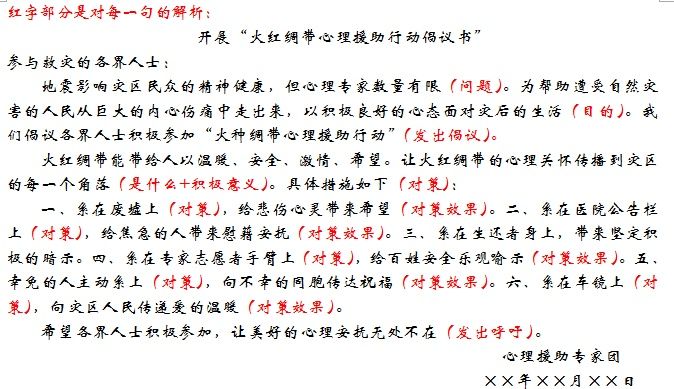 红字部分是对每一句的解析：
开展“火红绸带心理援助行动倡议书”
参与救灾的各界人士：
地震影响灾区民众的精神健康，但心理专家数量有限（问题）。为帮助遭受自然灾
害的人民从巨大的内心伤痛中走出来，以积极良好的心态面对灾后的生活（目的）。我
们倡议各界人士积极参加“火种绸带心理援助行动”（发出倡议）。
火红绸带能带给人以温暖、安全、激情、希望。让火红绸带的心理关怀传播到灾区
的每一个角落（是什么+积极意义）。具体措施如下（对策）：
一、系在废墟上（对策），给悲伤心灵带来希望（对策效果）。二、系在医院公告栏
上（对策），给焦急的人带来慰藉安抚（对策效果）。三、系在生还者身上，带来坚定积
极的暗示。四、系在专家志愿者手臂上（对策），给百姓安全乐观喻示（对策效果）。五、
幸免的人主动系上（对策），向不幸的同胞传达祝福（对策效果）。六、系在车镜上（对
策），向灾区人民传递爱的温暖（对策效果）。
希望各界人士积极参加，让美好的心理安抚无处不在（发出呼吁）。
心理援助专家团
××年××月××日